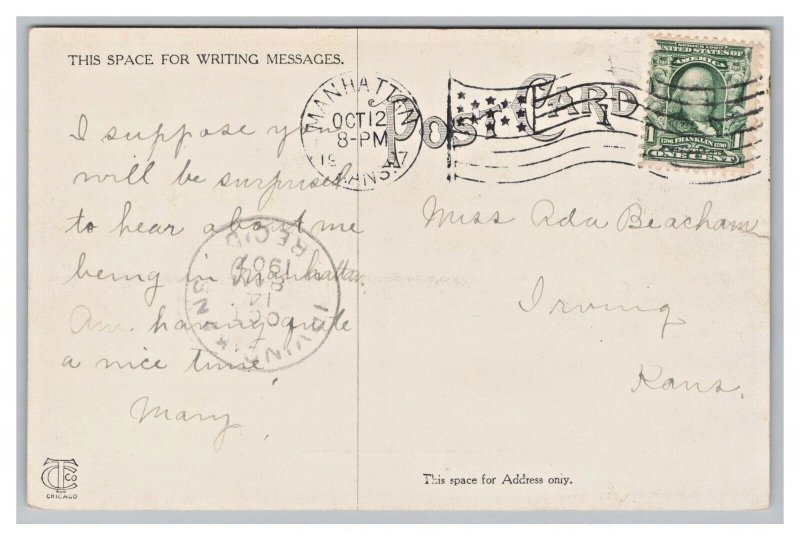 THIS SPACE FOR WRITING MESSAGES.
I suppose you
will be surprised
to hear about me
being in Manhattan.
Am having quite
a nice time.
Mary
TCCO
CHICAGO
MANHATTAN
OCT 12
8-PM
19 7
KANS.
POST CARD
1
SERIES 1902
UNITED STATES OF
AMERICA
1706 FRANKLIN 1790
1
ONE CENT
IRVING KANS
OCT
14
8 AM
1907
REC'D
Miss Ada Beacham
Irving
Kans.
This space for Address only.